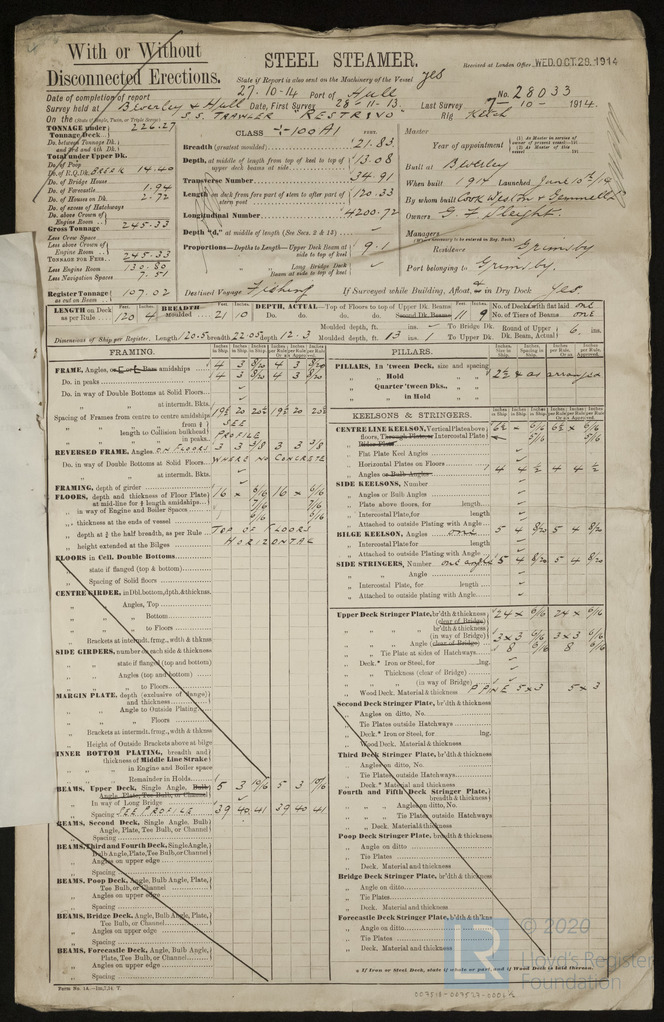 With or Without
Disconnected Erections.
STEEL STEAMER.
Received at London Office WED. OCT. 28. 1914
State if Report is also sent on the Machinery of the Vessel yes
Date of completion of report 27-10-14 Port of Hull No. 28033
Survey held at Beverley & Hull Date, First Survey 28-11-13 Last Survey 7-10-1914
On the S.S. TRAWLER "RESTRIVO" Rig Ketch
TONNAGE under Tonnage Deck 226.27
Do. between Tonnage Dk. and 3rd and 4th Dk.
Total under Upper Dk.
Do. of Poop
Do. of R.Q. Dk. BREAK 14.40
Do. of Bridge House
Do. of Forecastle 1.94
Do. of Houses on Dk. 2.72
Do. of excess of Hatchways
Do. above Crown of Engine Room
Gross Tonnage 245.33
Less Crew Space
Less above Crown of Engine Room
TONNAGE FOR FEES 245.33
Less Engine Room 130.80
Less Navigation Spaces 7.51
Register Tonnage as cut on Beam 107.02
CLASS + 100A1
Breadth (greatest moulded) 21.83
Depth, at middle of length from top of keel to top of upper deck beams at side 13.08
Transverse Number 34.91
Length on deck from fore part of stem to after part of stern post 120.33
Longitudinal Number 4200.72
Depth "d," at middle of length (See Secs. 2 & 13)
Proportions—Depths to Length—Upper Deck Beam at side to top of keel 9.1
Long Bridge Deck Beam at side to top of keel
Destined Voyage Fishing
If Surveyed while Building, Afloat, or in Dry Dock Yes.
Master
Year of appointment
Built at Beverley
When built 1914 Launched June 10th/14
By whom built Cook Welton & Gemmell Ltd
Owners G. F. Sleight.
Managers
(Where necessary to be entered in Reg. Book.)
Residence Grimsby
Port belonging to Grimsby.
LENGTH on Deck as per Rule 120 4
BREADTH moulded 21 10
DEPTH, ACTUAL—Top of Floors to top of Upper Dk. Beams 11 9
Do. do. do. Second Dk. Beams
No. of Decks with flat laid one
No. of Tiers of Beams one
Dimensions of Ship per Register, Length 120.5 breadth 22.05 depth 12.3
Moulded depth, ft. ins. To Bridge Dk.
Moulded depth, ft. 13 ins. 1 To Upper Dk.
Round of Upper Dk. Beam, Actual 6 ins.
FRAMING.
FRAME, Angles, or E or L Bars amidships 4 3 8/20 4 3 8/20
Do. in peaks 4 3 8/20 4 3 8/20
Do. in way of Double Bottoms at Solid Floors
at intermdt. Bkts.
Spacing of Frames from centre to centre amidships 19½ 20 20½ 19½ 20 20½
length to Collision bulkhead SEE
in peaks PROFILE
REVERSED FRAME, Angles. ON FLOORS 3 3 3/8 3 3 3/8
Do. in way of Double Bottoms at Solid Floors WHERE NO CONCRETE
at intermdt. Bkts.
FRAMING, depth of girder
FLOORS, depth and thickness of Floor Plate at mid-line for ½ length amidships 16 x 6/16 16 x 6/16
in way of Engine and Boiler Spaces 7/16 7/16
thickness at the ends of vessel 6/16 6/16
depth at ¾ the half breadth, as per Rule TOP OF FLOORS
height extended at the Bilges HORIZONTAL
FLOORS in Cell. Double Bottoms
state if flanged (top & bottom)
Spacing of Solid floors
CENTRE GIRDER, in Dbl. bottom, dpth. & thicknss.
Angles, Top
Bottom
to Floors
Brackets at intermdt. frmg., wdth & thknss
SIDE GIRDERS, number on each side & thickness
state if flanged (top and bottom)
Angles (top and bottom)
to Floors
MARGIN PLATE, depth (exclusive of flange) and thickness
Angle to Outside Plating
Floors
Brackets at intermdt. frmg., wdth & thknss
Height of Outside Brackets above at bilge
INNER BOTTOM PLATING, breadth and thickness of Middle Line Strake
in Engine and Boiler space
Remainder in Holds
BEAMS, Upper Deck, Single Angle, Bulb Angle, Plate, Tee Bulb, or Channel 5 3 10/16 5 3 10/16
In way of Long Bridge
Spacing SEE PROFILE 39 40 41 39 40 41
BEAMS, Second Deck, Single Angle, Bulb Angle, Plate, Tee Bulb, or Channel
Spacing
BEAMS, Third and Fourth Deck, Single Angle, Bulb Angle, Plate, Tee Bulb, or Channel
Angles on upper edge
Spacing
BEAMS, Poop Deck, Angle, Bulb Angle, Plate, Tee Bulb, or Channel
Angles on upper edge
Spacing
BEAMS, Bridge Deck, Angle, Bulb Angle, Plate, Tee Bulb, or Channel
Angles on upper edge
Spacing
BEAMS, Forecastle Deck, Angle, Bulb Angle, Plate, Tee Bulb, or Channel
Angles on upper edge
Spacing
PILLARS.
PILLARS, In 'tween Deck, size and spacing 2½ & as arranged
Hold
Quarter 'tween Dks.,
in Hold
KEELSONS & STRINGERS.
CENTRE LINE KEELSON, Vertical Plates above floors, Through Plate, or Intercostal Plate
Rider Plate
Flat Plate Keel Angles
Horizontal Plates on Floors
Angles or Bulb Angles 4 4 ½ 4 4 ½
SIDE KEELSONS, Number
Angles or Bulb Angles
Plate above floors, for length
Intercostal Plate, for length
Attached to outside Plating with Angle
BILGE KEELSON, Angles 5 4 8/20 5 4 8/20
Intercostal Plate for length
Attached to outside Plating with Angle
SIDE STRINGERS, Number one angle 5 4 8/20 5 4 8/20
Angle
Intercostal Plate, for length
Attached to outside plating with Angle
Upper Deck Stringer Plate, br'dth & thickness (clear of Bridge) 24 x 6/16 24 x 6/16
br'dth & thickness (in way of Bridge)
Angle (clear of Bridge) 3 x 3 6/16 3 x 3 6/16
Tie Plate at sides of Hatchways 8 6/16 8 6/16
Deck.* Iron or Steel, for lng.
Thickness (clear of Bridge)
(in way of Bridge)
Wood Deck. Material & thickness P PINE 5 x 3 5 x 3
Second Deck Stringer Plate, br'dth & thickness
Angles on ditto, No.
Tie Plates outside Hatchways
Deck.* Iron or Steel, for lng.
Wood Deck. Material & thickness
Third Deck Stringer Plate, br'dth & thickness
Angles on ditto, No.
Tie Plates, outside Hatchways
Deck.* Material and thickness
Fourth and Fifth Deck Stringer Plate, breadth & thickness
Angles on ditto, No.
Tie Plates outside Hatchways
Deck. Material & thickness
Poop Deck Stringer Plate, breadth & thickness
Angle on ditto
Tie Plates
Deck. Material and thickness
Bridge Deck Stringer Plate, br'dth & thickness
Angle on ditto
Tie Plates
Deck. Material and thickness
Forecastle Deck Stringer Plate, br'dth & th'kns
Angle on ditto
Tie Plates
Deck. Material and thickness
* If Iron or Steel Deck, state if whole or part, and if Wood Deck is laid thereon.
© 2020
Lloyd's Register
Foundation